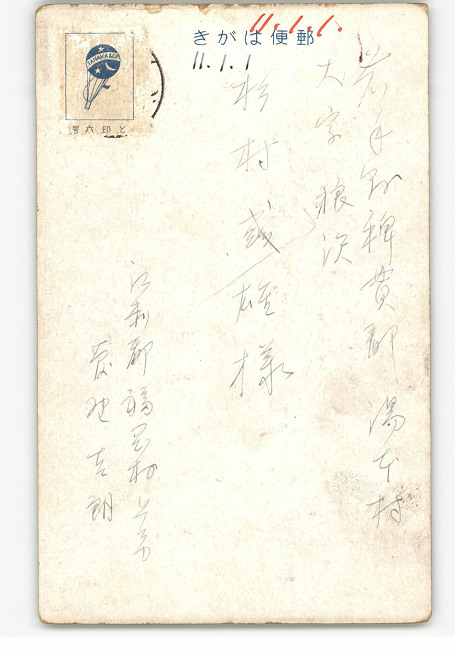 きがは便郵
11.1.1.
11.1.1
TANAKA&CO
号六印と
岩手縣稗貫郡湯本村
大字狼沢
杉村 雄様
江刺郡福岡村
吉朗